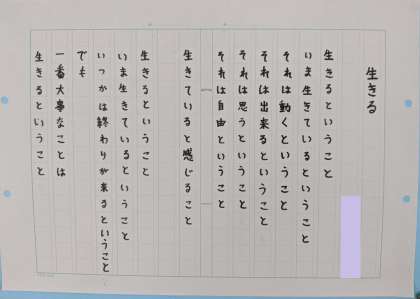 生きる
生きるということ
いま生きているということ
それは動くということ
それは出来るということ
それは思うということ
それは自由ということ
生きていると感じること
生きるということ
いま生きているということ
いつかは終わりが来るということ
でも
一番大事なことは
生きるということ